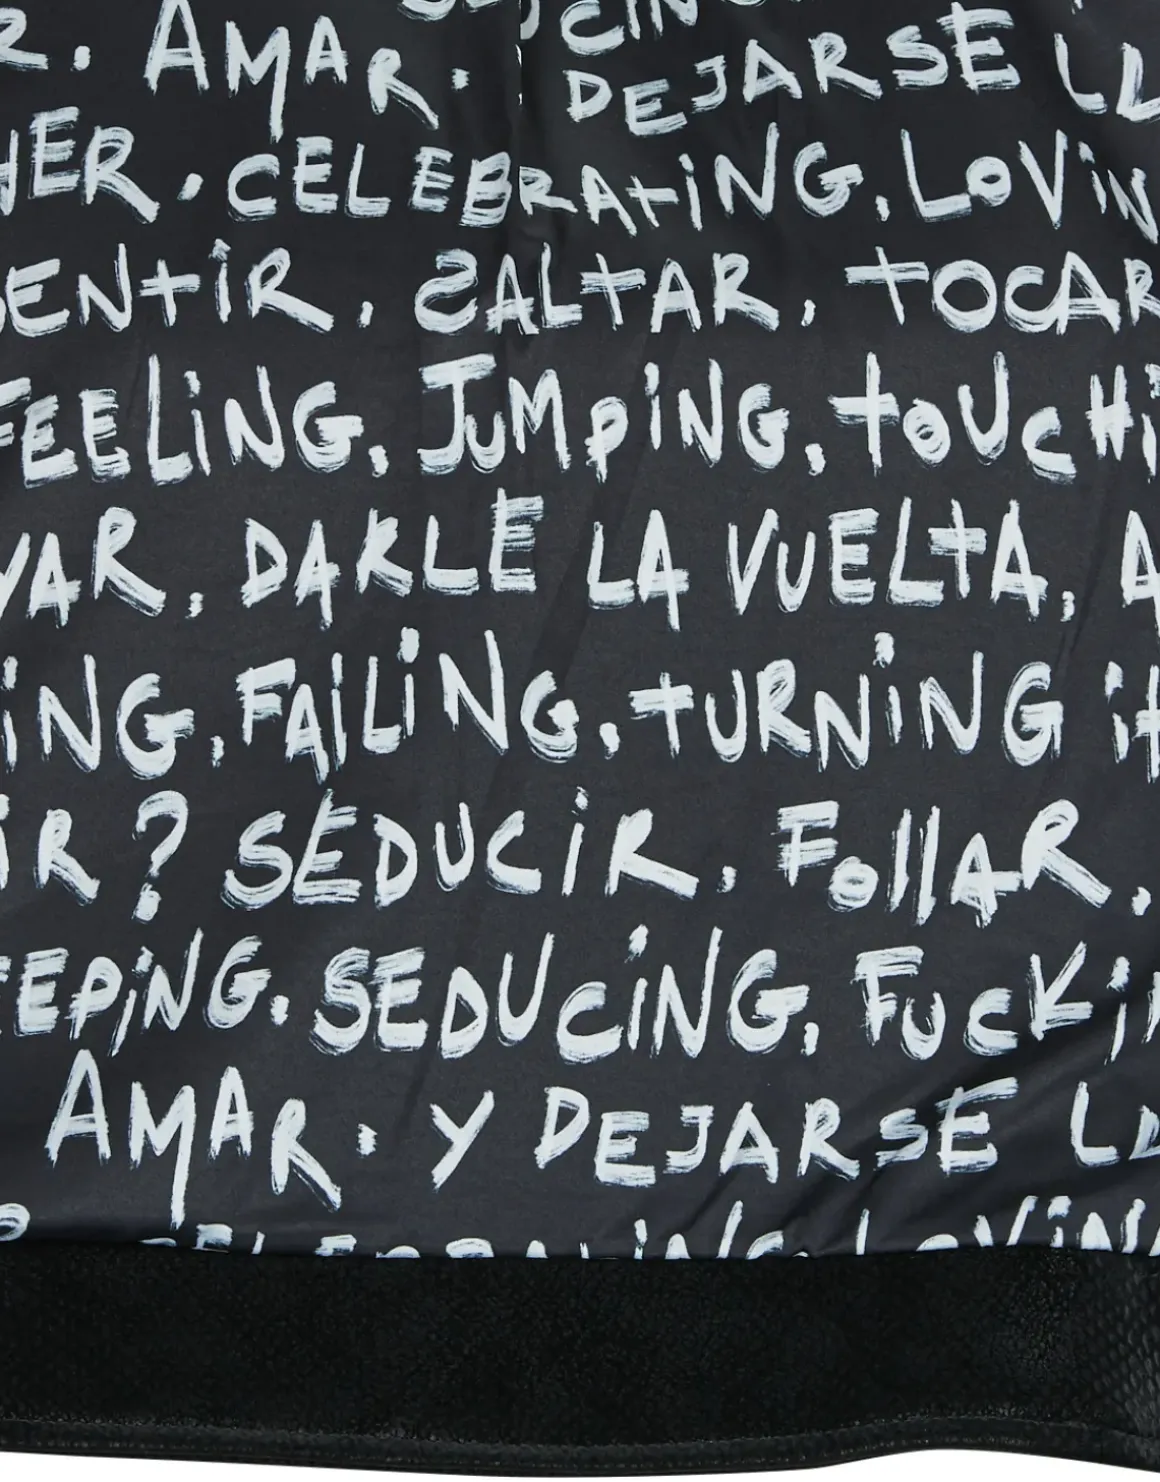 AMAR. DEJARSE
CELEBRATING, LOVIN
SENTIR, SALTAR, TOCAR
FEELING, JUMPING, TOUCHI
VAR, DARLE LA VUELTA, A
ING, FAILING, TURNING it
IR? SEDUCIR, FOLLAR,
EEPING, SEDUCING, FUCKIN
AMAR. Y DEJARSE LL
CELEBRATING, LOVIN